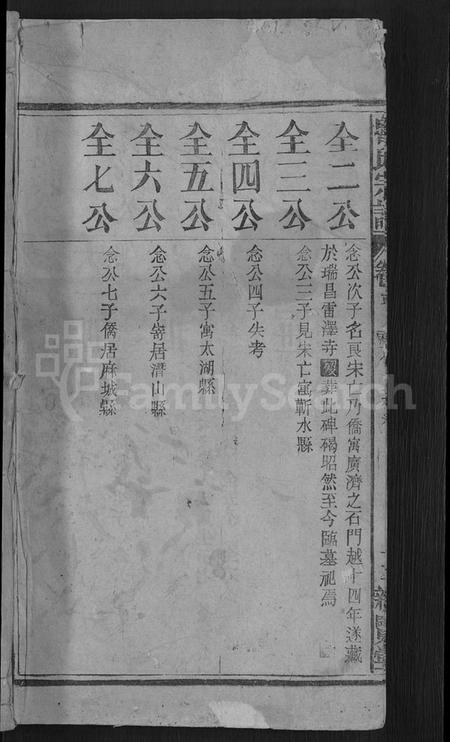 仝二公
念公次子名良宋亡乃僑寓廣濟之石門越十四年遂藏
於瑞昌雷澤寺歿葬此碑碣昭然至今臨墓祀焉
仝三公
念公三子見宋亡寓蘄水縣
仝四公
念公四子失考
仝五公
念公五子寓太湖縣
仝六公
念公六子寄居潛山縣
仝七公
念公七子僑居麻城縣
FamilySearch